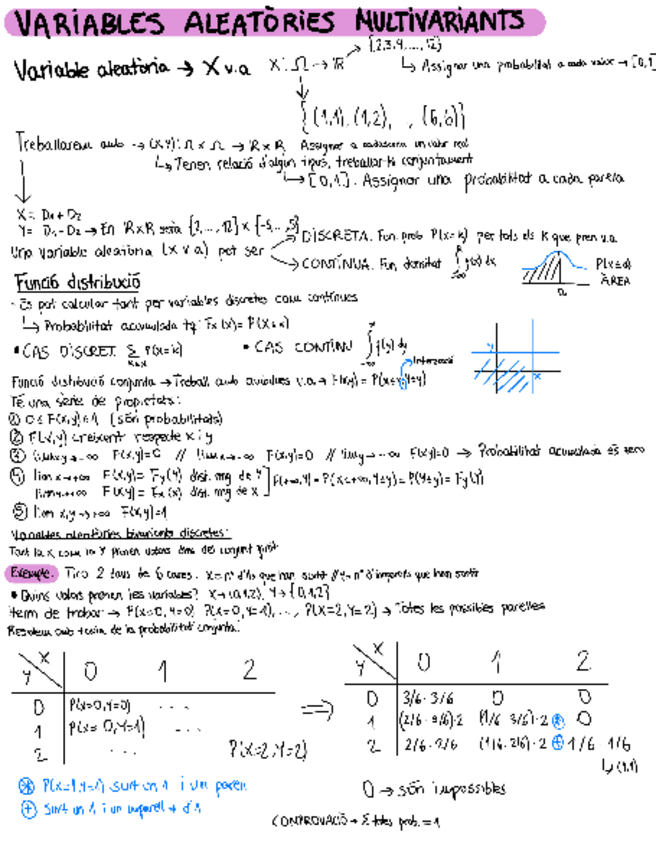 VARIABLES ALEATÒRIES MULTIVARIANTS
Variable aleatòria → X v.a X: Ω → ℝ → {2,3,4,...,12}
↳ Assignar una probabilitat a cada valor → [0,1]
{(1,1),(1,2), , (6,6)}
Treballarem amb → (X,Y): Ω x Ω → ℝ x ℝ Assignar a cadascuna un valor real
↳ Tenen relació d'algun tipus, treballar-hi conjuntament
↳ [0,1]. Assignar una probabilitat a cada parella
X = D1 + D2
Y = D1 - D2 → En ℝxℝ serà {2,...,12} x {-5,...,5}
Una variable aleatòria (X v.a) pot ser
DISCRETA. Fun. prob P(X=k) per tots els k que pren v.a.
CONTÍNUA. Fun. densitat
P(X≤a)
ÀREA
a
Funció distribució
- Es pot calcular tant per variables discretes com contínues
↳ Probabilitat acumulada tq: Fx(x) = P(X≤x)
• CAS DISCRET Σ P(X=k) • CAS CONTINU ∫ f(y) dy
Intersecció
y
x
Funció distribució conjunta → Treball amb
Té una sèrie de propietats:
① 0 ≤ F(x,y) ≤ 1 (són probabilitats)
② F(x,y) creixent respecte x i y
③ lim x,y→-∞ F(x,y)=0 // lim x→-∞ F(x,y)=0 // lim y→-∞ F(x,y)=0 → Probabilitat acumulada és zero
④ lim x→+∞ F(x,y) = Fy(y) dist. mg de Y
lim y→+∞ F(x,y) = Fx(x) dist. mg de X
F(+∞,y) = P(X≤+∞, Y≤y) = P(Y≤y) = Fy(y)
⑤ lim x,y→+∞ F(x,y)=1
Variables aleatòries bivariants discretes:
Tant la X com la Y prenen valors dins del conjunt finit
Exemple. Tiro 2 daus de 6 cares. X = nº d'1s que han sortit // Y = nº d'imparells que han sortit
• Quins valors prenen les variables? X → {0,1,2}, Y → {0,1,2}
Hem de trobar → P(X=0,Y=0), P(X=0,Y=1), ..., P(X=2,Y=2) → Totes les possibles parelles
Resolem amb taula de la probabilitat conjunta:
Y X 0 1 2
0 P(X=0,Y=0) ...
1 P(X=0,Y=1) ...
2 ... P(X=2,Y=2)
⟹
Y X 0 1 2
0 3/6 · 3/6 0 0
1 (2/6 · 3/6)·2 (1/6 · 3/6)·2 ⊛ 0
2 2/6 · 2/6 (1/6 · 2/6)·2 ⊕ 1/6 · 1/6
↳ (1,1)
⊛ P(X=1,Y=1) surt un 1 i un parell
⊕ Surt un 1 i un imparell ≠ d'1
0 → són impossibles
COMPROVACIÓ → Σ totes prob. = 1